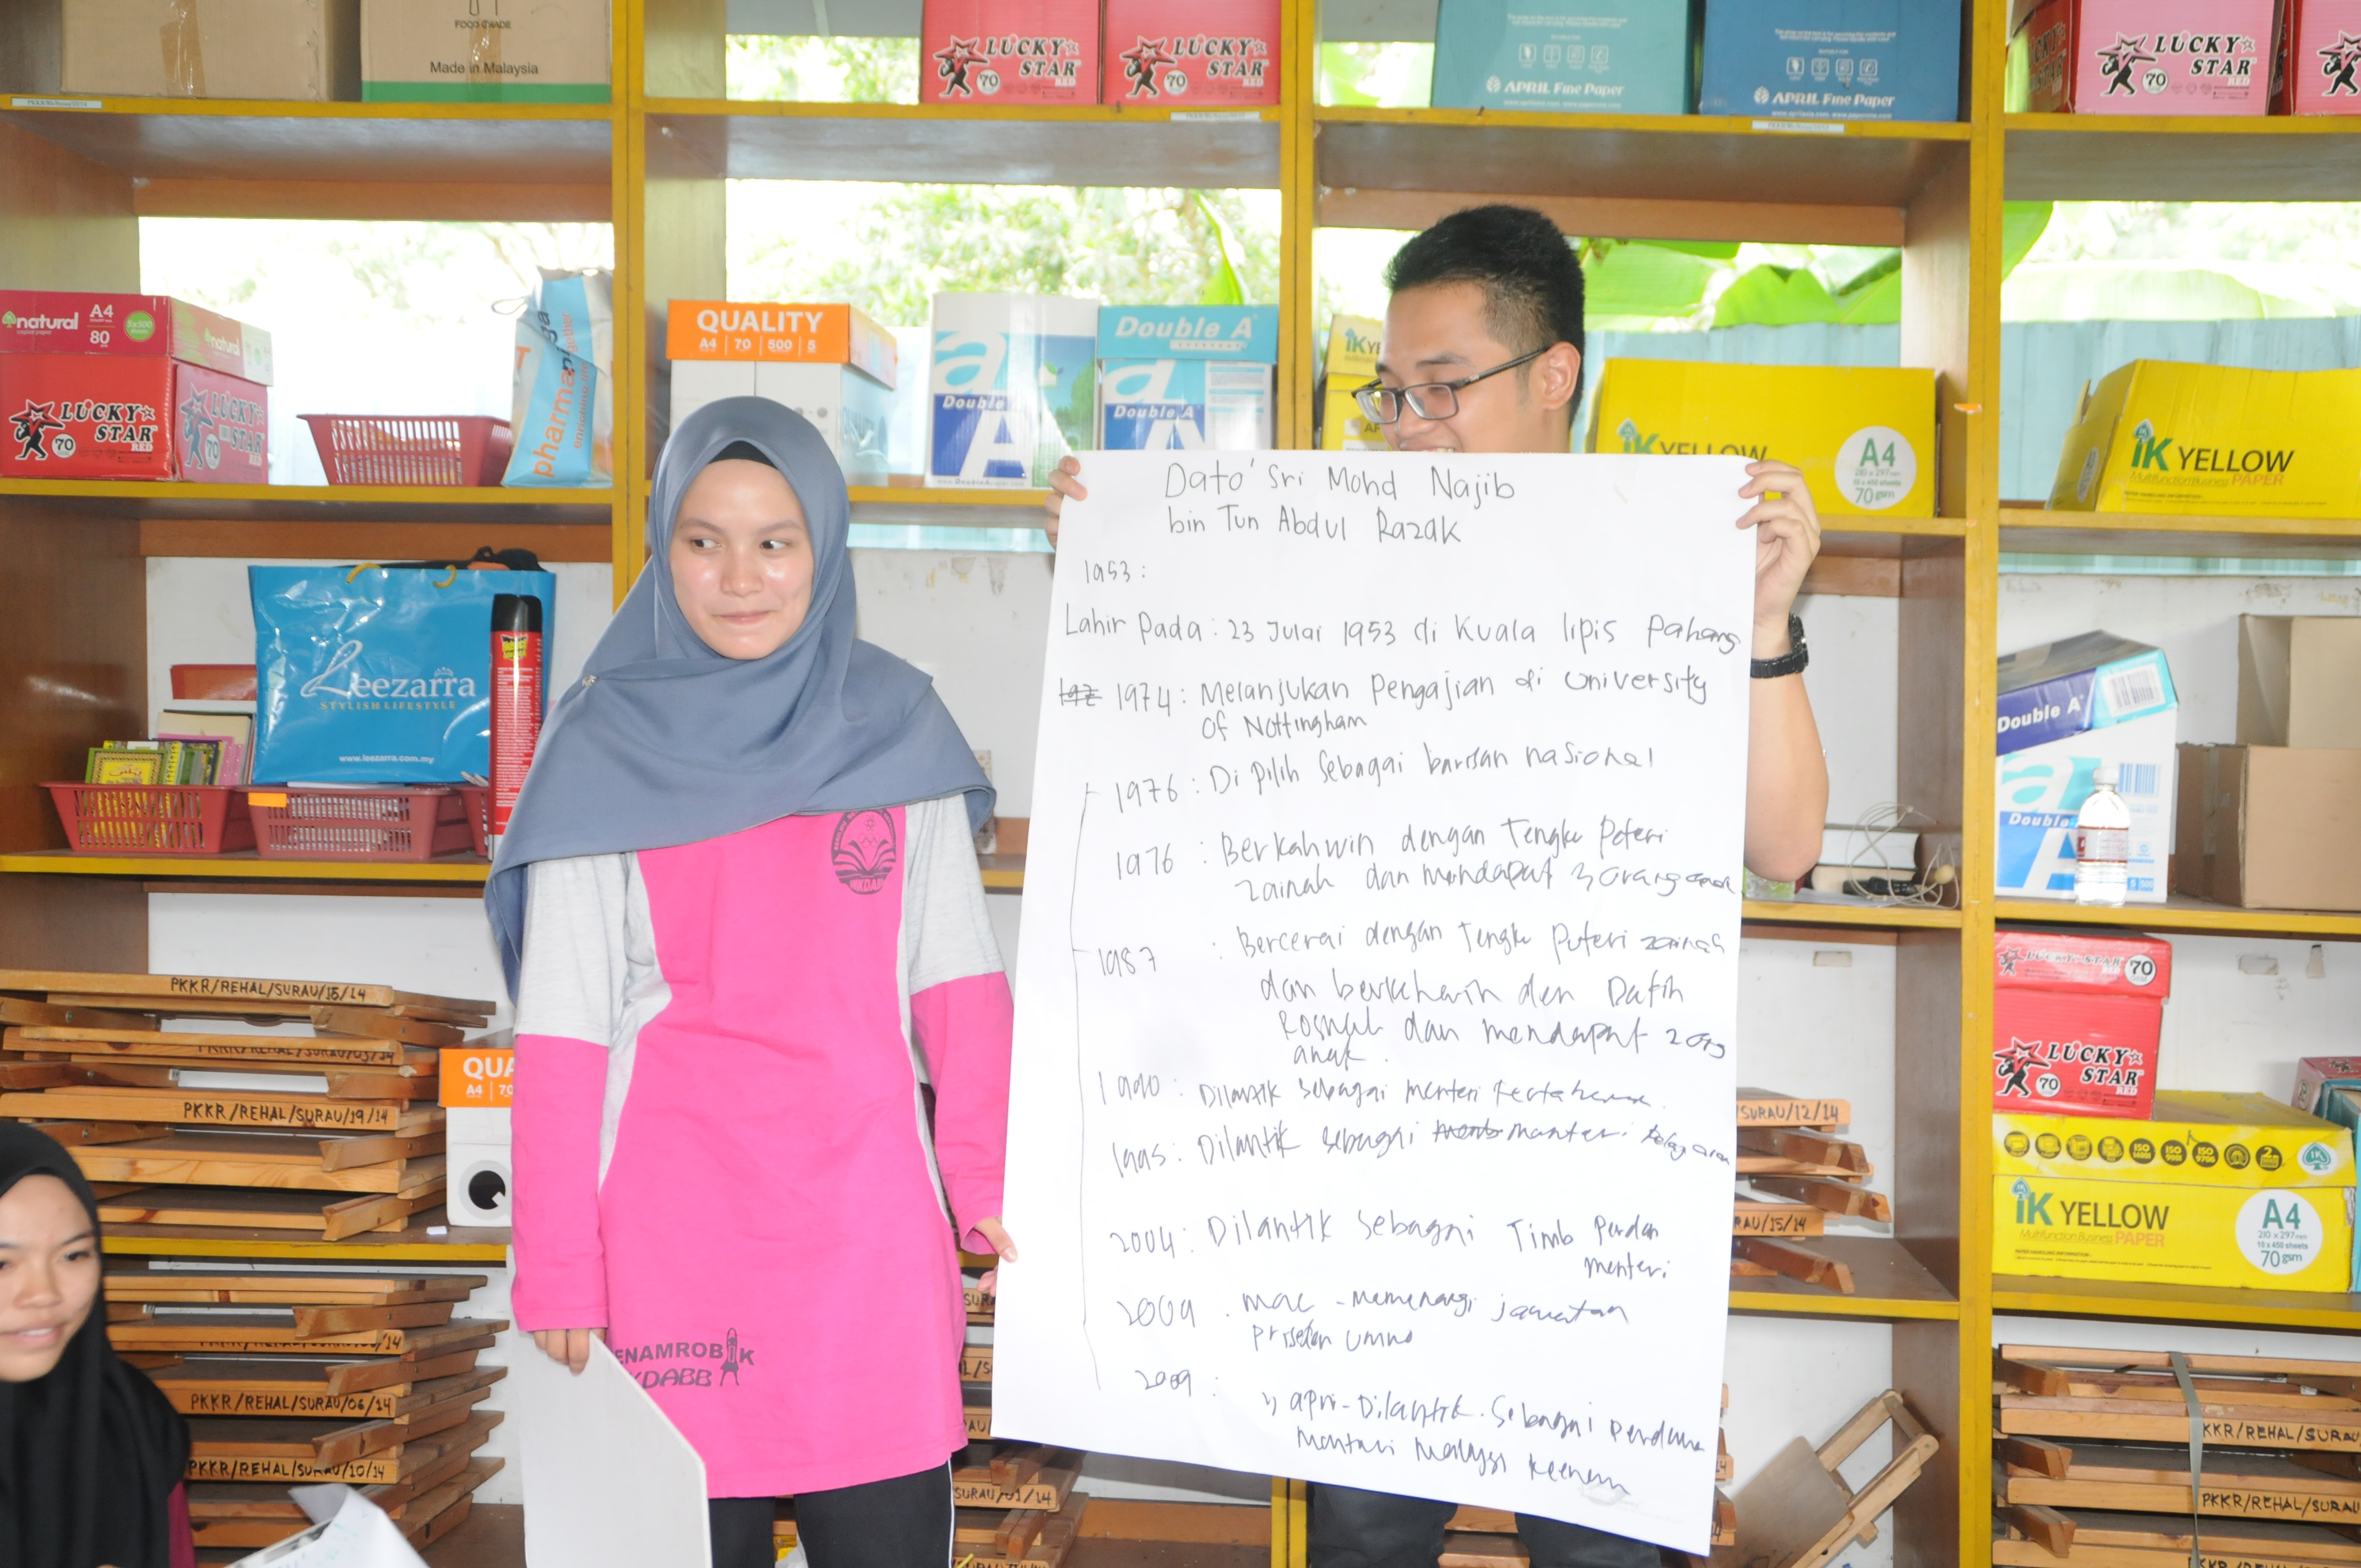 FOOD GRADE
Made in Malaysia
LUCKY STAR 70
LUCKY STAR 70
APRIL Fine Paper
APRIL Fine Paper
LUCKY STAR 70
natural
A4
80
5x500
natural
LUCKY STAR 70
LUCKY STAR 70
pharmaniaga
QUALITY
A4 | 70 | 500 | 5
Double A
Double A
Double A
www.DoubleApaper.com
YELLOW
A4
210 x 297mm
10 x 450 sheets
70gsm
iK YELLOW
Multifunction Business PAPER
Leezarra
STYLISH LIFESTYLE
www.leezarra.com.my
Dato' Sri Mohd Najib
bin Tun Abdul Razak
1953:
Lahir Pada: 23 Julai 1953 di Kuala lipis Pahang
1974: Melanjukan Pengajian di University
of Nottingham
1976: Di pilih Sebagai barisan nasional
1976: Berkahwin dengan Tengku Poteri
zainah dan mendapat 3 orang anak
1987: Bercerai dengan Tengku Puteri zainah
dan berkahwin den Datin
Rosmah dan mendapat 2 org
anak.
1990: Dilantik sebagai menteri Pertahanan.
1995: Dilantik sebagai menteri
2004: Dilantik sebagai Timb Perdan
menteri
2009: mac - memenangi jawatan
UMNO
2009: Dilantik Sebagai Perdana
Double A
Double A
PKKR/REHAL/SURAU/15/14
PKKR/REHAL/SURAU/03/14
PKKR/REHAL/SURAU/19/14
PKKR/REHAL/SURAU/06/14
PKKR/REHAL/SURAU/10/14
QUA
A4 | 70
ENAMROBIK
KDABB
SURAU/01/14
SURAU/12/14
RAU/15/14
LUCKY STAR 70
LUCKY STAR 70
iK YELLOW
Multifunction Business PAPER
A4
210 x 297mm
10 x 450 sheets
70gsm
KKR/REHAL/SURAU
PKKR/REHAL/SURAU
PKKR/REHAL/SURAU